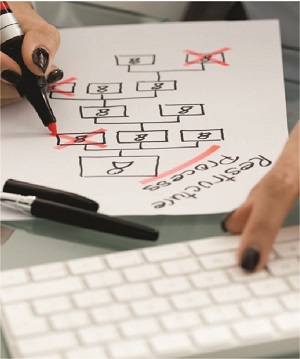 Restructure
Process